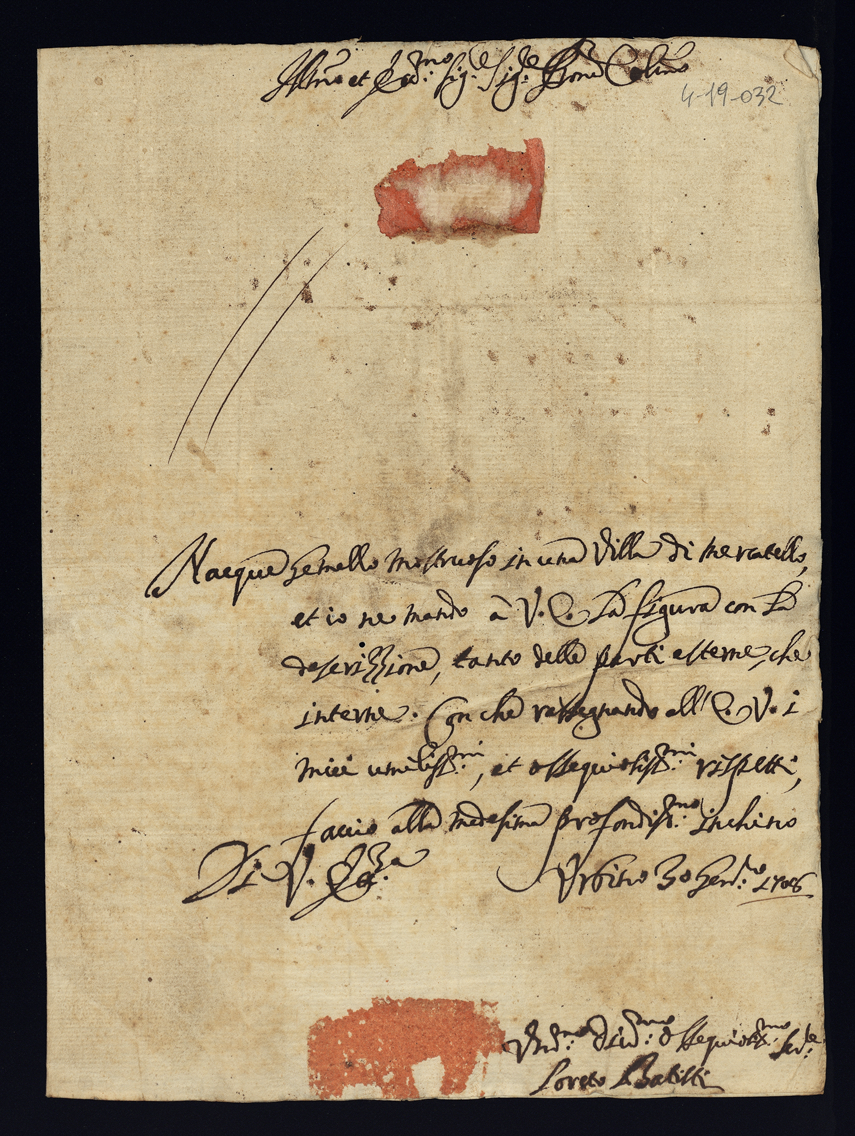 Illmo et Ecc.mo Sig.e Sig.e Pron Col.mo
4-19-032
Nacque gemello mostruoso in una Villa di Mercatello,
et io ne mando à V. E. La figura con La
descrizzione, tanto delle parti esterne, che
interne. Con che rassegnando all' E. V. i
miei umiliss.mi, et ossequiosiss.mi rispetti,
faccio alla medesima profondiss.mo inchino
Di V. Ecc.za
Urbino 30 Genn.o 1706
Um.mo Div.mo Ossequiosiss.mo Ser.e
Loreto Balilli